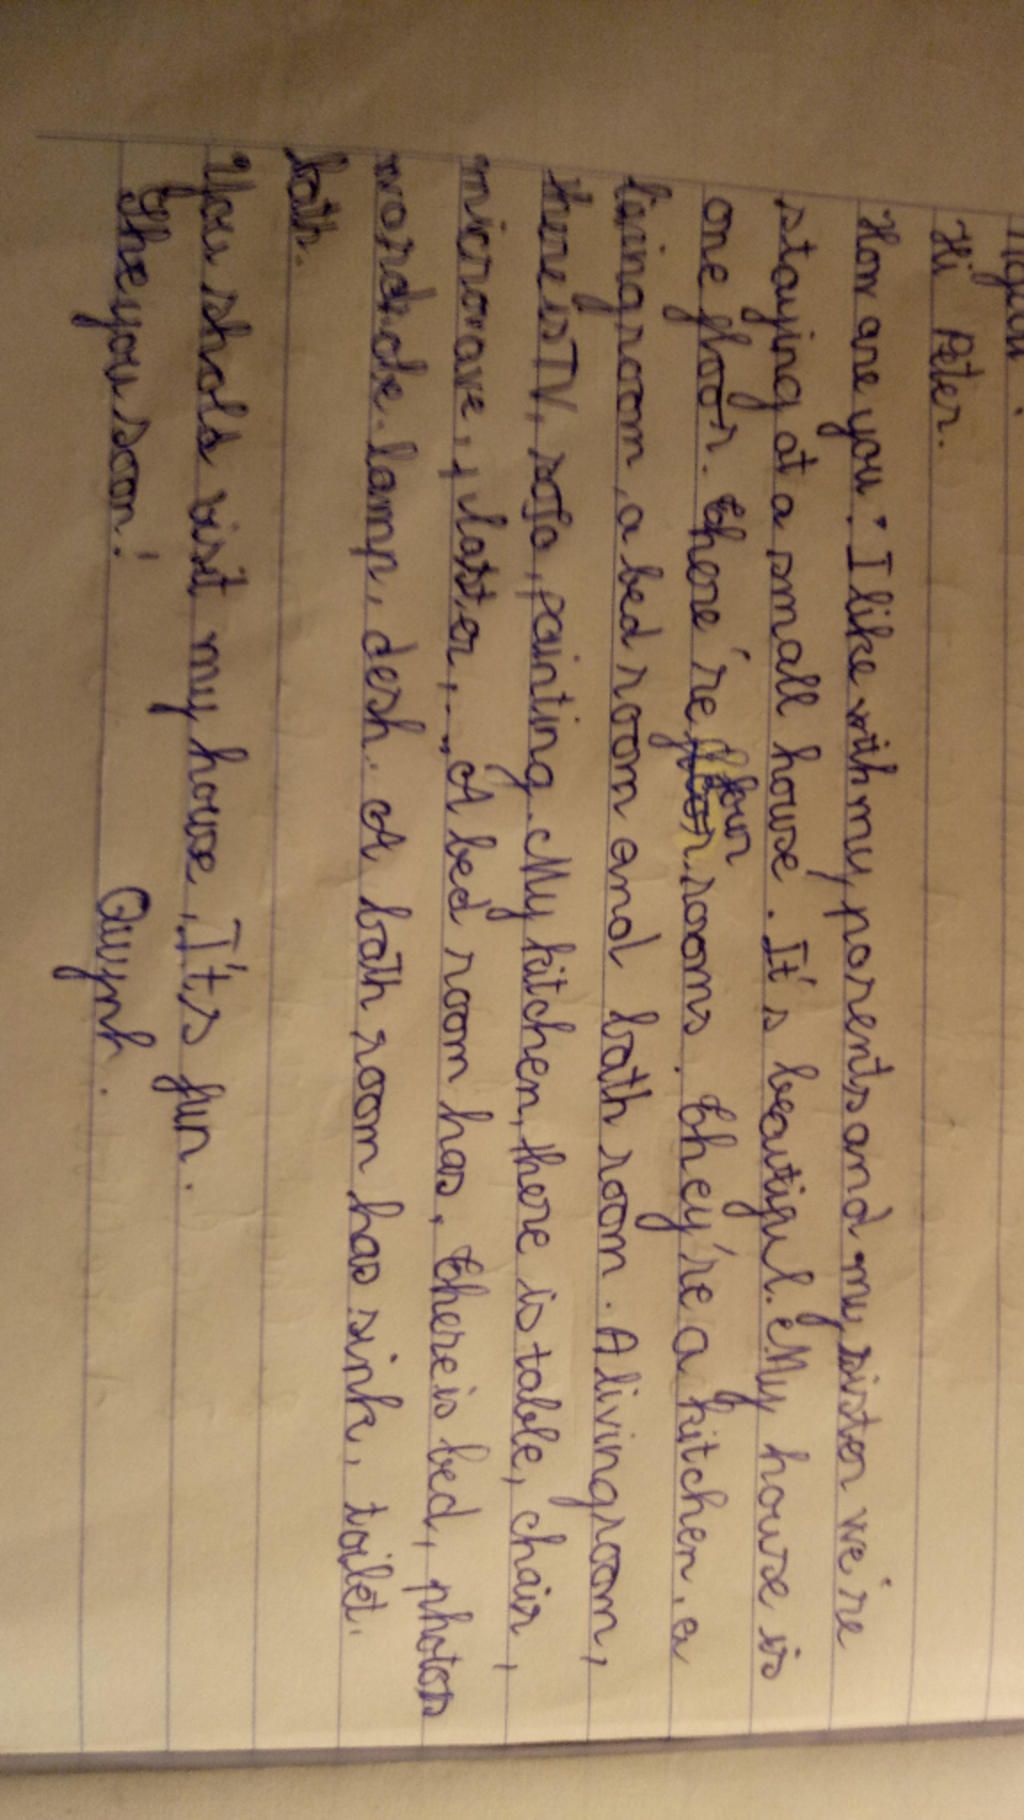 Hi Peter.
How are you? I like with my parents and my sister we're
staying at a small house. It's beautiful. My house is
one floor. there're four rooms. they're a kitchen, a
livingroom, a bed room and bath room. A livingroom,
there is TV, sofa, painting. My kitchen, there is table, chair,
microwave, A bed room has, there is bed, photos
lamp, desh. A bath room has sink, toilet.
bath.
You shold visit my house, It's fun.
you soon!
Quynh.